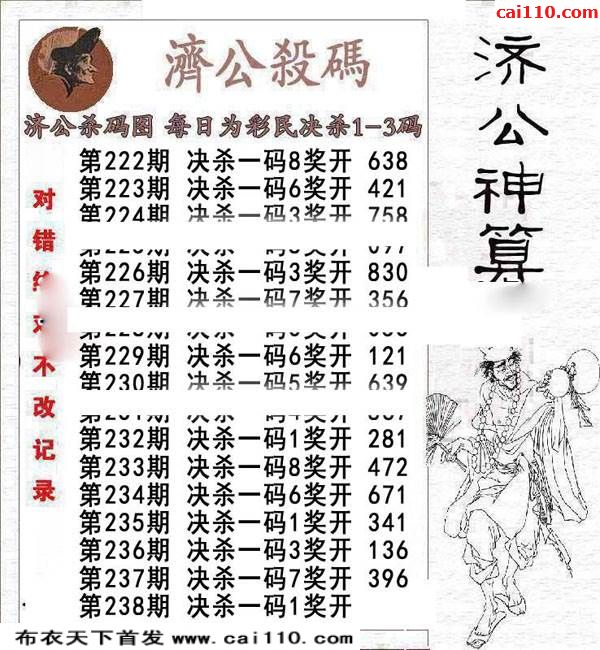 cai110.com
濟公殺碼
济公杀码图 每日为彩民决杀1-3码
第222期 决杀一码8奖开 638
第223期 决杀一码6奖开 421
第224期 决杀一码3奖开 758
第226期 决杀一码3奖开 830
第227期 决杀一码7奖开 356
第229期 决杀一码6奖开 121
第230期 决杀一码5奖开 639
第232期 决杀一码1奖开 281
第233期 决杀一码8奖开 472
第234期 决杀一码6奖开 671
第235期 决杀一码1奖开 341
第236期 决杀一码3奖开 136
第237期 决杀一码7奖开 396
第238期 决杀一码1奖开
对错
不改记录
济公神算
布衣天下首发 www.cai110.com